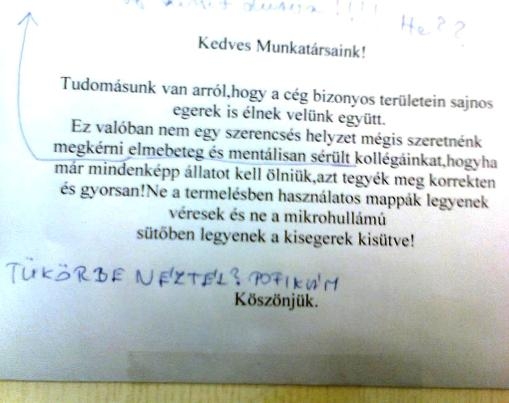 !!!!
He??
Kedves Munkatársaink!
Tudomásunk van arról,hogy a cég bizonyos területein sajnos
egerek is élnek velünk együtt.
Ez valóban nem egy szerencsés helyzet mégis szeretnénk
megkérni elmebeteg és mentálisan sérült kollégáinkat,hogyha
már mindenképp állatot kell ölniük,azt tegyék meg korrekten
és gyorsan!Ne a termelésben használatos mappák legyenek
véresek és ne a mikrohullámú
sütőben legyenek a kisegerek kisütve!
TÜKÖRBE NÉZTÉL? POFIKÁM
Köszönjük.